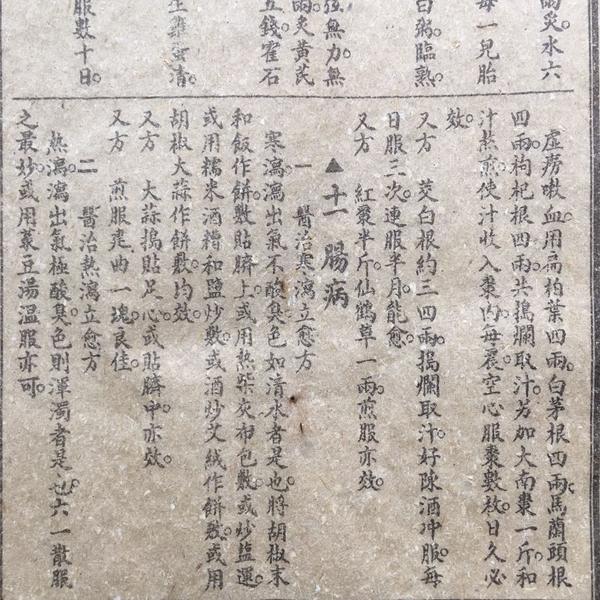 兩炙水六
每一見胎
白粥臨熟
弦無力無
兩炙黃芪
五錢雀石
生雞蛋清
服數十日
虛癆嗽血用扁柏葉四兩白茅根四兩馬蘭頭根
四兩枸杞根四兩共搗爛取汁另加大南棗一斤和
汁煎使汁收入棗內每晨空心服棗數枚日久必
效
又方 茭白根約三四兩搗爛取汁好陳酒冲服每
日服三次連服半月能愈
又方 紅棗半斤仙鶴草一兩煎服亦效
▲十一 腸病
一 醫治寒瀉立愈方
寒瀉瀉出氣不酸臭色如清水者是也將胡椒末
和飯作餅敷貼臍上或用熱柴灰布包敷或炒鹽運
或用糯米酒糟和鹽炒敷或酒炒艾絨作餅敷或用
胡椒大蒜作餅敷均效
又方 大蒜搗貼足心或貼臍中亦效
又方 煎服走曲一塊良佳
二 醫治熱瀉立愈方
熱瀉瀉出氣極酸臭色則渾濁者是也六一散服
之最妙或用菉豆湯溫服亦可